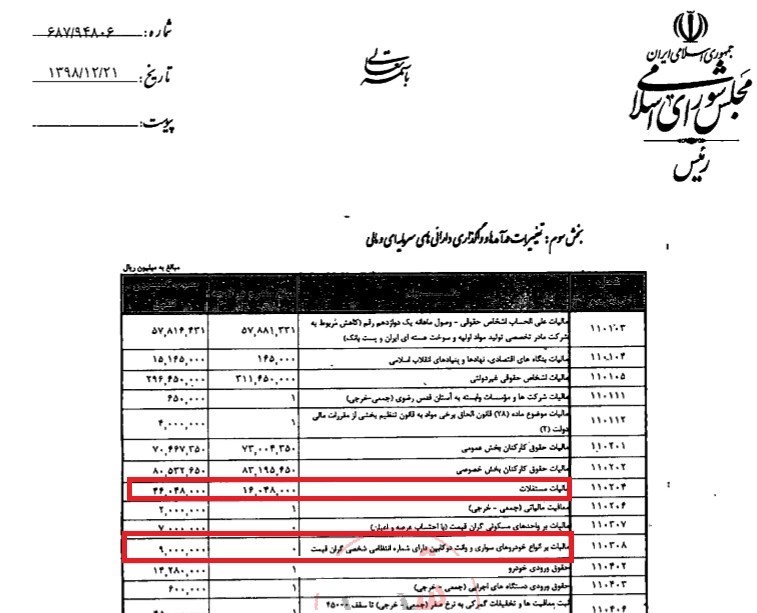 جمهوری اسلامی ایران
مجلس شورای اسلامی
رئیس
باسمه تعالی
شماره: ۶۸۷/۹۴۸۰۶
تاریخ: ۱۳۹۸/۱۲/۲۱
پیوست:
بخش سوم: تغییرات درآمدها و واگذاری دارائی های سرمایه ای و مالی
مبالغ به میلیون ریال
۱۱۰۱۰۳ مالیات علی الحساب اشخاص حقوقی - وصول ماهانه یک دوازدهم رقم (کاهش مربوط به شرکت مادر تخصصی تولید مواد اولیه و سوخت هسته ای ایران و پست بانک) ۵۷,۸۸۱,۳۳۱ ۵۷,۸۱۶,۴۳۱
۱۱۰۱۰۴ مالیات بنگاه های اقتصادی، نهادها و بنیادهای انقلاب اسلامی ۱۶۵,۰۰۰ ۱۵,۱۶۵,۰۰۰
۱۱۰۱۰۵ مالیات اشخاص حقوقی غیردولتی ۳۱۱,۶۵۰,۰۰۰ ۲۹۶,۶۵۰,۰۰۰
۱۱۰۱۱۱ مالیات شرکت ها و مؤسسات وابسته به آستان قدس رضوی (جمعی-خرجی) ۱ ۶۵۰,۰۰۰
۱۱۰۱۱۲ مالیات موضوع ماده (۷۸) قانون الحاق برخی مواد به قانون تنظیم بخشی از مقررات مالی دولت (۲) ۱ ۴,۰۰۰,۰۰۰
۱۱۰۲۰۱ مالیات حقوق کارکنان بخش عمومی ۷۳,۰۰۴,۳۵۰ ۷۰,۴۶۷,۳۵۰
۱۱۰۲۰۲ مالیات حقوق کارکنان بخش خصوصی ۸۳,۱۹۵,۶۵۰ ۸۰,۵۳۲,۶۵۰
۱۱۰۲۰۴ مالیات مستغلات ۱۶,۰۴۸,۰۰۰
۱۱۰۲۰۶ معافیت مالیاتی (جمعی - خرجی) ۱ ۲,۰۰۰,۰۰۰
۱۱۰۳۰۷ مالیات بر واحدهای مسکونی گران قیمت (با احتساب عرصه و اعیان) ۰ ۷,۰۰۰,۰۰۰
۱۱۰۳۰۸ مالیات بر انواع خودروهای سواری و وانت دوکابین دارای شماره انتظامی شخصی گران قیمت ۰ ۹,۰۰۰,۰۰۰
۱۱۰۴۰۲ حقوق ورودی خودرو ۱ ۱۴,۲۸۰,۰۰۰
۱۱۰۴۰۳ حقوق ورودی دستگاه های اجرایی (جمعی - خرجی) ۱ ۶۰۰,۰۰۰
۱۱۰۴۰۴ ثبت معافیت ها و تخفیفات گمرکی به نرخ صفر (جمعی - خرجی) تا سقف ۴۵۰۰۰